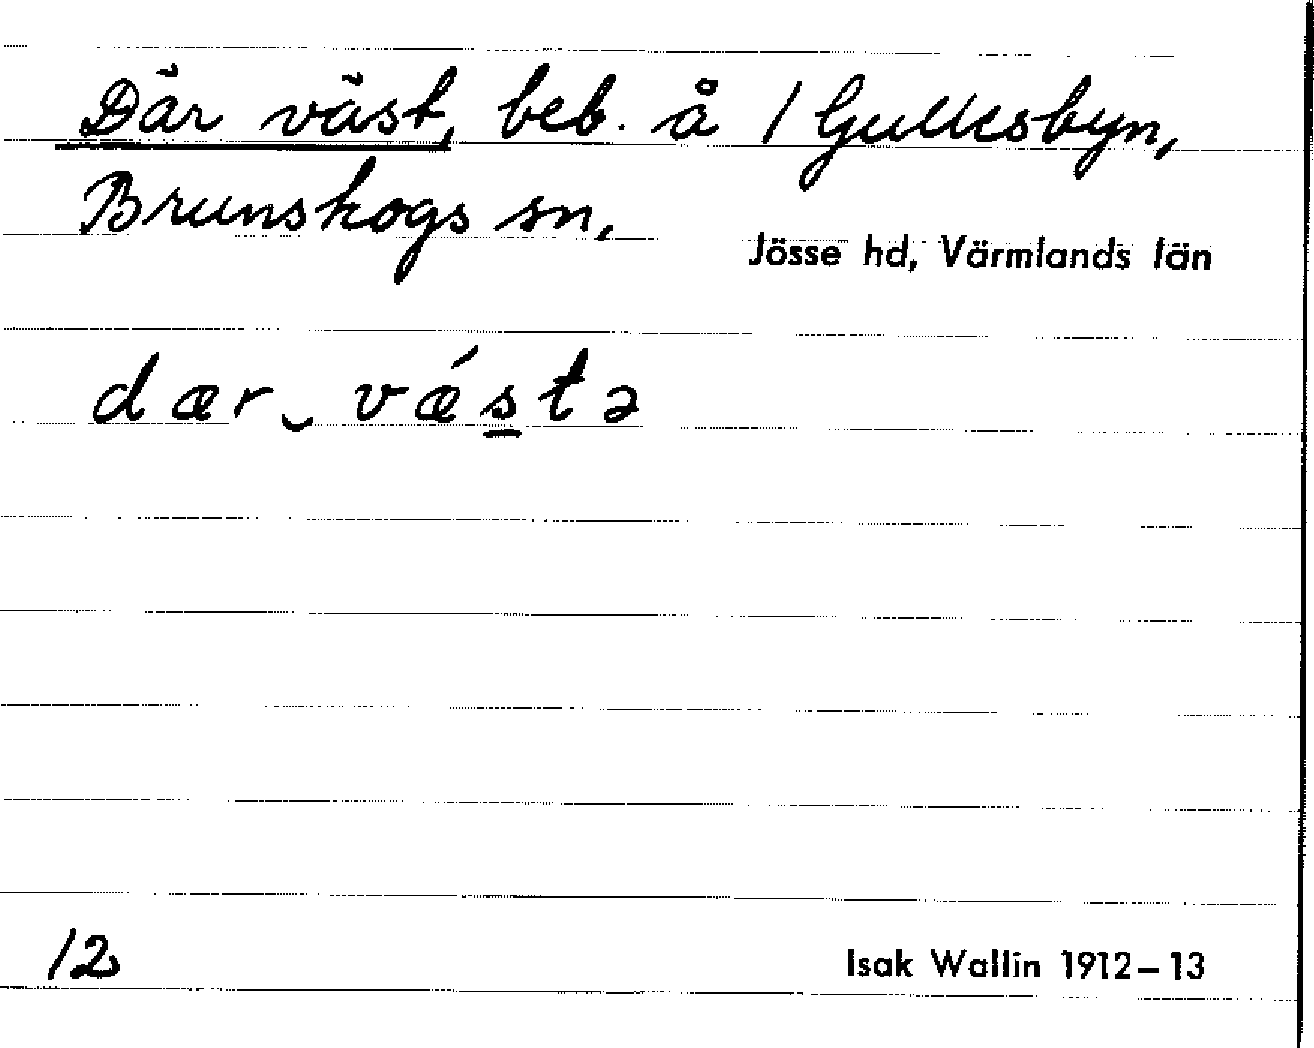 Där väst, beb. å 1 Gullesbyn,
Brunskogs sn,
Jösse hd, Värmlands län
dær‿vǽs̲tə
12
Isak Wallin 1912–13